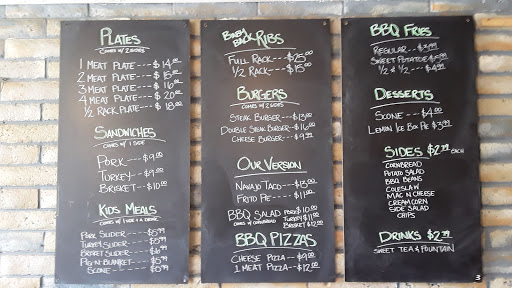 PLATES
COMES W/ 2 SIDES
1 MEAT PLATE---$14.00
2 MEAT PLATE---$15.00
3 MEAT PLATE---$16.00
4 MEAT PLATE---$20.00
1/2 RACK PLATE---$18.00
SANDWICHES
COMES W/ 1 SIDE
PORK---$9.00
TURKEY---$9.00
BRISKET---$10.00
KIDS MEALS
COMES W/ 1 SIDE & A DRINK
PORK SLIDER---$5.99
TURKEY SLIDER---$5.99
BRISKET SLIDER---$6.99
PIG'N-BLANKET---$5.99
SCONE---$5.99
BABY BACK RIBS
FULL RACK---$25.00
1/2 RACK---$15.00
BURGERS
COMES W/ 2 SIDES
STEAK BURGER---$13.00
DOUBLE STEAK BURGER-$16.00
CHEESE BURGER---$9.99
OUR VERSION
NAVAJO TACO---$13.00
FRITO PIE---$11.00
BBQ SALAD PORK $10.00
COMES W/ CORNBREAD TURKEY $11.00
BRISKET $12.00
BBQ PIZZAS
CHEESE PIZZA---$9.00
1 MEAT PIZZA---$12.00
BBQ FRIES
REGULAR---$3.99
SWEET POTATOE $5.99
1/2 & 1/2---$4.99
DESSERTS
SCONE---$4.00
LEMON ICE BOX PIE $3.99
SIDES $2.79 EACH
CORNBREAD
POTATO SALAD
BBQ BEANS
COLESLAW
MAC N CHEESE
CREAM CORN
SIDE SALAD
CHIPS
DRINKS $2.39
SWEET TEA & FOUNTAIN
3